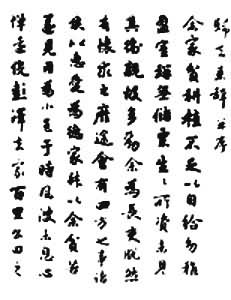 歸去來辭並序
余家貧耕植不足以自給幼稚
盈室缾無儲粟生々所資未見
其術親故多勸余為長吏脫然
有懷求之靡途會有四方之事諸
侯以惠愛為德家叔以余貧苦
遂見用為小邑于時風波未息心
憚遠役彭澤去家百里公田之